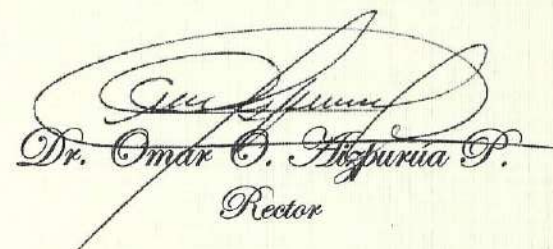 Dr. Omar O. Aizpurúa P.
Rector